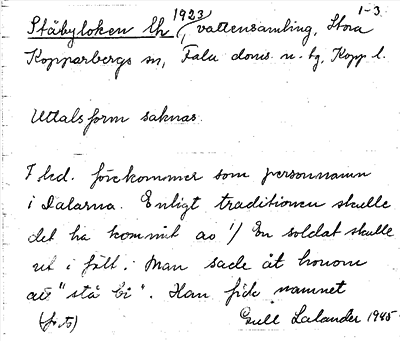 1-3
Ståbyloken Eh (1923, vattensamling, Stora
Kopparbergs sn, Falu doms. n. tg, Kopp l.
Uttalsform saknas.
F led. förekommer som personnamn
i Dalarna. Enligt traditionen skulle
det ha kommit av 1/ En soldat skulle
ut i fält. Man sade åt honom
att "stå bi". Han fick namnet
(fr. ts) Gull Lalander 1945